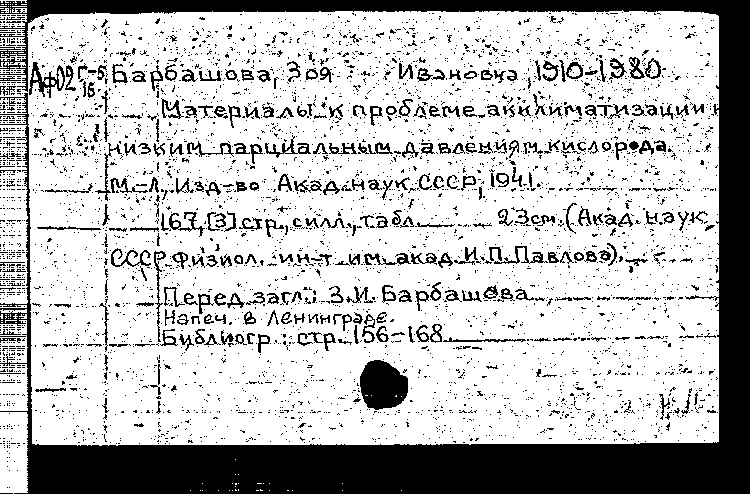 Аф02 Г-5 Барбашова, Зоя Ивановна, 1910-1980
16
Материалы к проблеме акклиматизации к
низким парциальным давлениям кислорода.
М.-Л. Изд-во Акад. наук СССР, 1941.
167, [3] стр., с илл., табл. 23 см. (Акад. наук
СССР Физиол. ин-т им. акад. И.П. Павлова).
Перед загл.: З.И. Барбашова
Напеч. в Ленинграде.
Библиогр.: стр. 156-168.